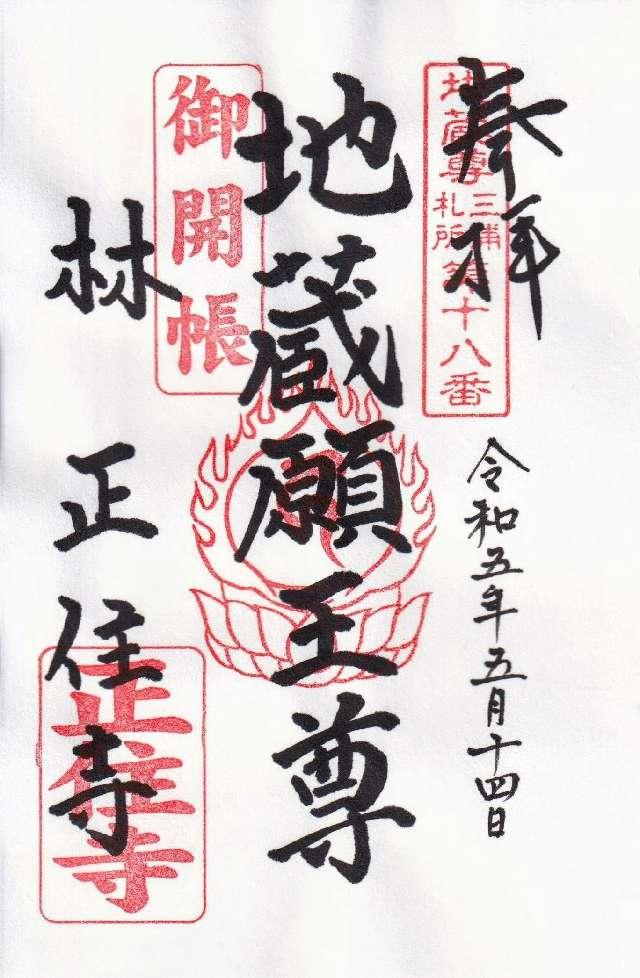 奉拝
地蔵尊
三浦
札所
第十八番
令和五年五月十四日
地蔵願王尊
御開帳
林
正住寺
正住寺